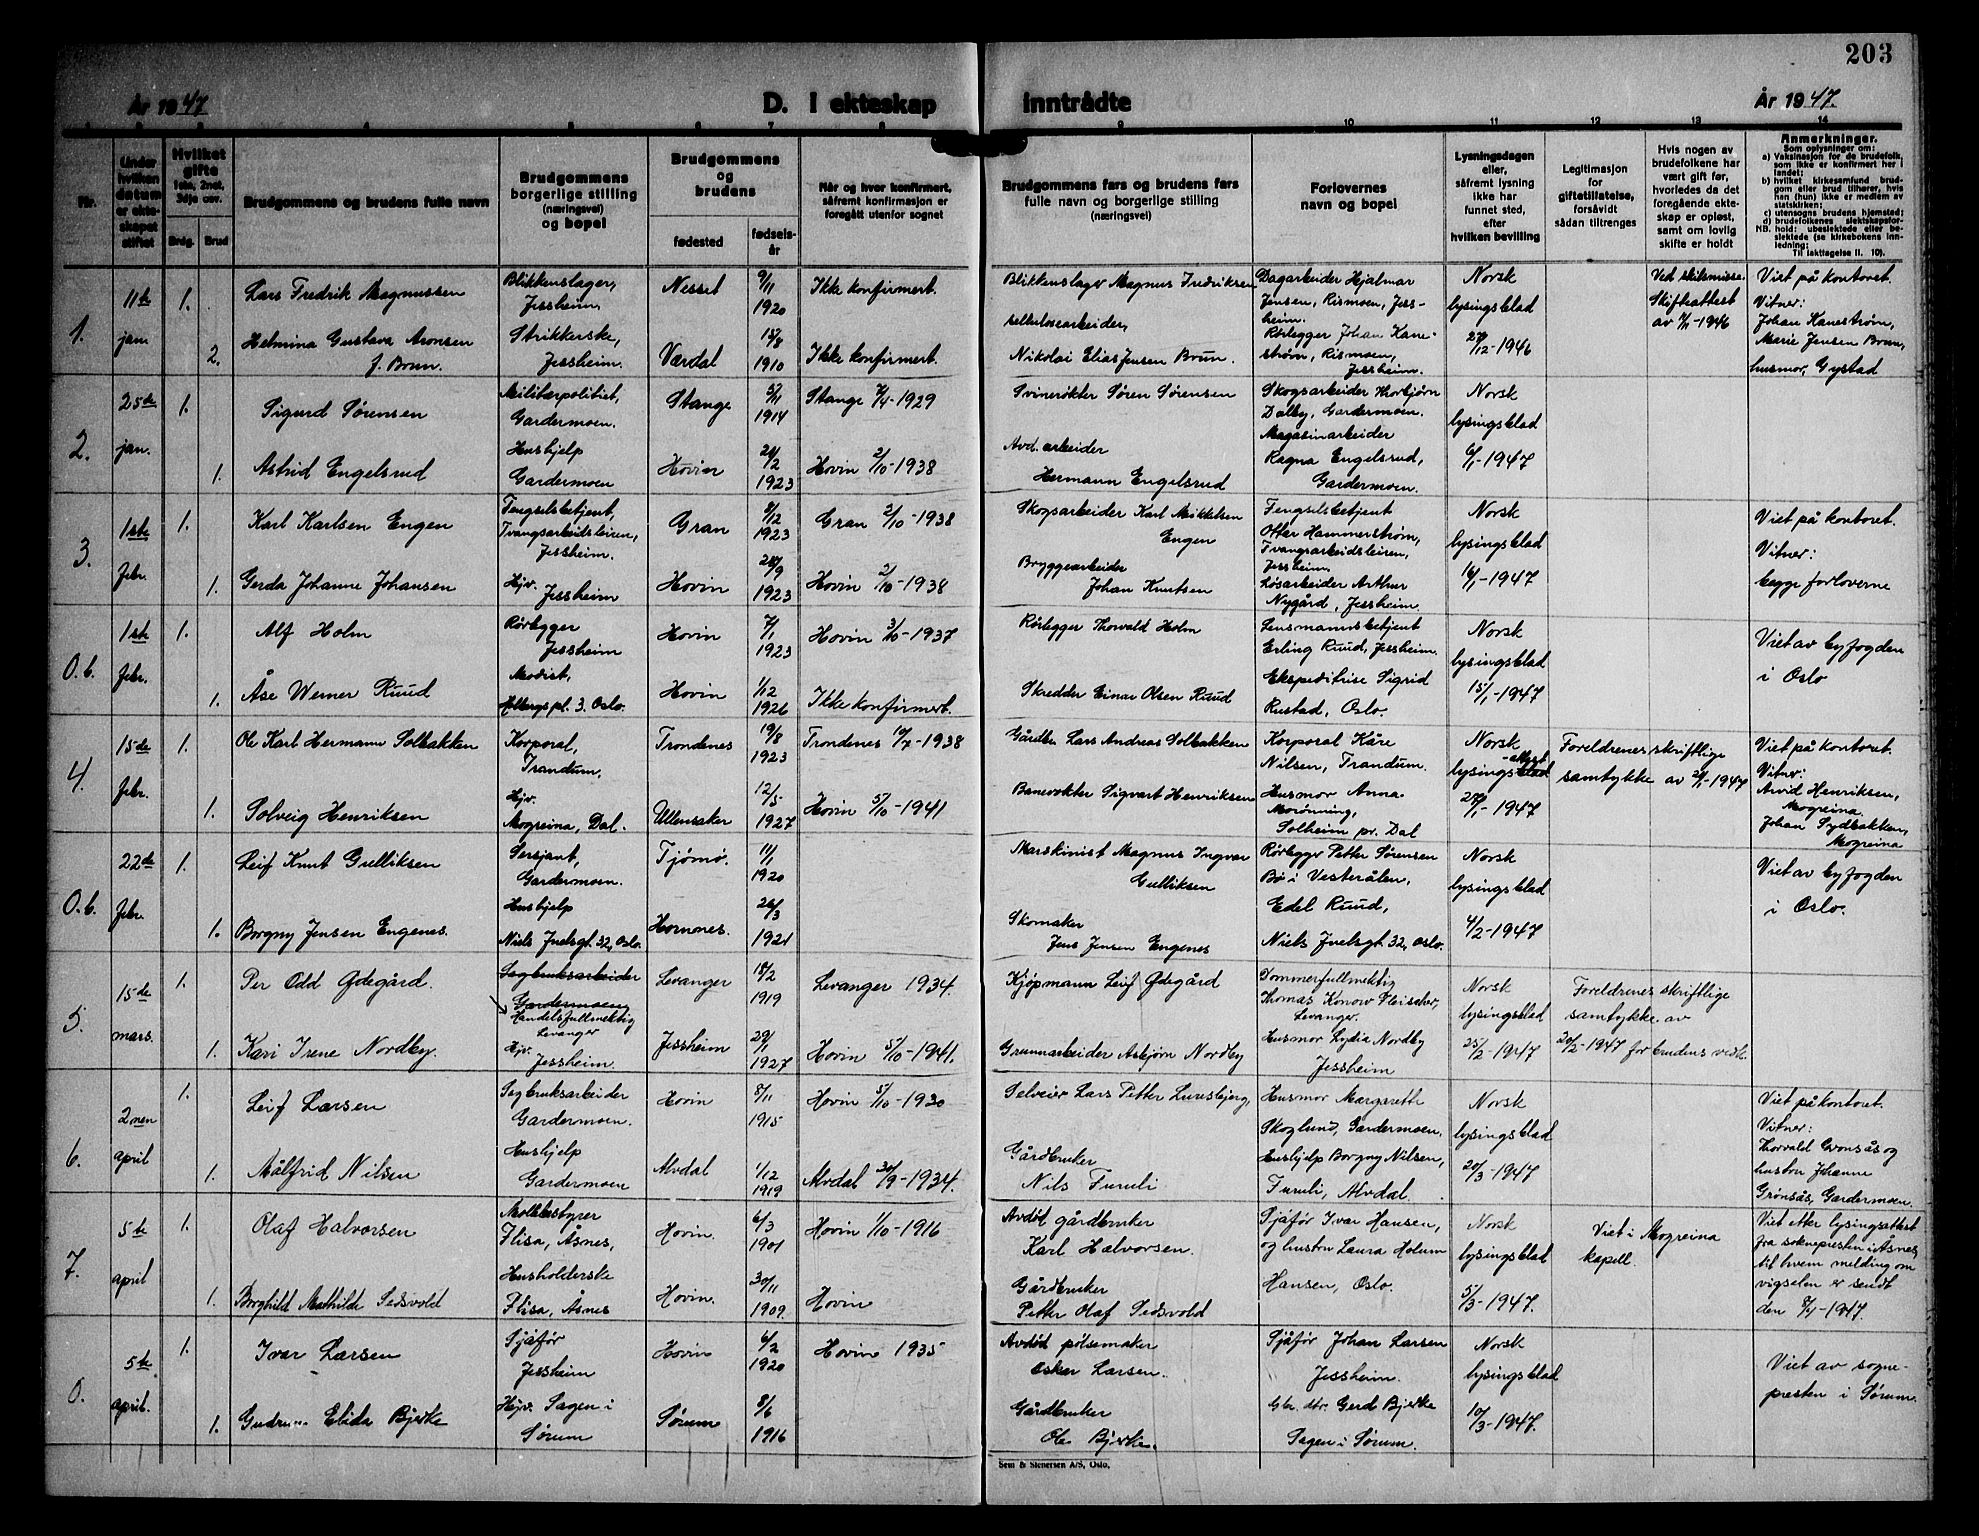 203
År 1947
D. I ekteskap inntrådte
År 1947.
1 2 3 4 5 6 7 8 9 10 11 12 13 14
Nr.
Under hvilken datum er ekteskapet stiftet
Hvilket gifte
1ste, 2net, 3dje osv.
Brdg. Brud
Brudgommens og brudens fulle navn
Brudgommens borgerlige stilling (næringsvei) og bopel
Brudgommens og brudens
fødested
fødselsår
Når og hvor konfirmert, såfremt konfirmasjon er foregått utenfor sognet
Brudgommens fars og brudens fars fulle navn og borgerlige stilling (næringsvei)
Forlovernes navn og bopel
Lysningsdagen eller, såfremt lysning ikke har funnet sted, efter hvilken bevilling
Legitimasjon for giftetillatelse, forsåvidt sådan tiltrenges
Hvis nogen av brudefolkene har vært gift før, hvorledes da det foregående ekteskap er opløst, samt om lovlig skifte er holdt
Anmerkninger.
Som oplysninger om:
a) Vaksinasjon for de brudefolk, som ikke er konfirmert her i landet;
b) hvilket kirkesamfund brudgom eller brud tilhører, hvis han (hun) ikke er medlem av statskirken;
c) utensogns brudens hjemsted;
d) brudefolkenes slektskapsforhold: ubeslektede eller beslektede (se kirkebokens innledning;
NB.
Til iakttagelse II. 10).
1.
11te jan.
1.
Lars Fredrik Magnussen
Blikkenslager, Jessheim,
Nesset
9/11 1920
Ikke konfirmert.
Blikkenslager Magnus Fredriksen
Dagarbeider Hjalmar Jensen, Rismoen, Jessheim.
Norsk lysingsblad 27/12-1946
Ved skilsmisse. Skifteattest av 7/11-1946
Viet på kontoret.
Vitner:
Johan Kanestrøm,
Marie Jensen Brun,
husmor, Gystad
2.
Helmina Gustava Aronsen f. Brun.
Strikkerske, Jessheim.
Værdal
15/8 1910
Ikke konfirmert.
Cellulosearbeider,
Nikolai Elias Jensen Brun.
Rørlegger Johan Kanestrøm, Rismoen, Jessheim.
2.
25de jan.
1.
Sigurd Sørensen
Militærpolitiet, Gardermoen.
Stange
5/11 1914
Stange 7/4-1929
Svinerøkter Søren Sørensen
Skogsarbeider Thorbjørn Dalby, Gardermoen.
Norsk lysingsblad 6/1-1947
1.
Astrid Engelsrud
Hushjelp Gardermoen
Hovin
24/2 1923
Hovin 2/10-1938
Avd. arbeider
Hermann Engelsrud
Magasinarbeider Ragna Engelsrud, Gardermoen.
3.
1ste febr.
1.
Karl Karlsen Engen
Fengselsbetjent, Tvangsarbeidsleiren, Jessheim.
Gran
8/12 1923
Gran 2/10-1938
Skogsarbeider Karl Mikkelsen Engen
Fengselsbetjent Otter Hammerstrøm, Tvangsarbeidsleiren, Jessheim.
Norsk lysingsblad 16/1-1947
Viet på kontoret.
Vitner:
begge forloverne
1.
Gerda Johanne Johansen
Hjv. Jessheim
Hovin
28/9 1923
Hovin 2/10-1938
Bryggearbeider
Johan Knutsen
Løsarbeider Arthur Nygård, Jessheim.
0.b.
1ste febr.
1.
Alf Holm
Rørlegger Jessheim
Hovin
7/1 1923
Hovin 3/10-1937
Rørlegger Thorvald Holm
Lensmannsbetjent Erling Ruud, Jessheim.
Norsk lysingsblad 15/1-1947
Viet av byfogden i Oslo
1.
Åse Werner Ruud
Modist, Holbergs pl. 3. Oslo.
Hovin
1/12 1926
Ikke konfirmert.
Skredder Einar Olsen Ruud
Ekspeditrise Sigrid Rustad, Oslo.
4.
15de febr.
1.
Ole Karl Hermann Solbakken
Korporal, Trandum,
Trondenes
19/8 1923
Trondenes 10/7-1938
Gårdbr. Lars Andreas Solbakken
Korporal Kåre Nilsen, Trandum.
Norsk lysingsblad 27/1-1947
Foreldrenes skriftlige samtykke av 21/1-1947
Viet på kontoret.
Vitner:
Arvid Henriksen, Mogreina
Johan Sydbakken, Mogreina
1.
Solveig Henriksen
Hjv. Mogreina, Dal.
Ullensaker
12/5 1927
Hovin 5/10-1941
Banevokter Sigvart Henriksen
Husmor Anna Morønning, Solheim pr. Dal
0.b.
22de febr.
1.
Leif Knut Gulliksen
Sersjant, Gardermoen.
Tjømø.
11/1 1920
Maskinist Magnus Ingvar Gulliksen
Rørlegger Petter Sørensen Bø i Vesterålen,
Norsk lysingsblad 4/2-1947
Viet av byfogden i Oslo.
1.
Borgny Jensen Engenes.
Hushjelp Niels Juelsgt. 32, Oslo.
Hornnes.
26/3 1921
Skomaker
Jens Jensen Engenes
Edel Ruud, Niels Juelsgt. 32, Oslo.
5.
15de mars.
1.
Per Odd Ødegård.
Sagbruksarbeider Gardermoen
Handelsfullmektig Levanger
Levanger
18/2 1919
Levanger 1934.
Kjøpmann Leif Ødegård
Dommerfullmektig Thomas Konow Fleischer, Levanger.
Norsk lysingsblad 25/2-1947
Foreldrenes skriftlige samtykke av 20/2-1947 for brudens vedk.
1.
Kari Irene Nordby.
Hjv. Jessheim.
Jessheim
29/1 1927
Hovin 5/10-1941.
Grunnarbeider Asbjørn Nordby
Husmor Lydia Nordby Jessheim
6.
2nen april
1.
Leif Larsen
Sagbruksarbeider Gardermoen.
Hovin
8/11 1915
Hovin 5/10-1930
Selveier Lars Petter Lunsbjerg,
Husmor Margareth Skoglund, Gardermoen,
Norsk lysingsblad 20/3-1947
Viet på kontoret.
Vitner:
Thorvald Grønsås og
hustru Johanne
Grønsås, Gardermoen.
1.
Målfrid Nilsen
Hushjelp Gardermoen
Alvdal
1/12 1919
Alvdal 30/9-1934.
Gårdbruker
Nils Furuli
Hushjelp Borgny Nilsen, Furuli, Alvdal.
7.
5te april
1.
Olaf Halvorsen
Møllebestyrer Flisa, Åsnes,
Hovin.
6/3 1901
Hovin 1/10-1916
Avdøt gårdbruker
Karl Halvorsen.
Sjåfør Ivar Hansen, og hustru Laura Holum Hansen, Oslo.
Norsk lysingsblad 5/3-1947.
Viet i Mogreina kapell.
Viet etter lysingsattest
fra soknepresten i Åsnes
til hvem melding om
vigselen er sendt
den 9/4-1947.
1.
Borghild Mathilde Sedsvold
Husholderske Flisa, Åsnes
Hovin.
30/11 1909.
Hovin
Gårdbruker
Petter Olaf Sedsvold
0.
5te april.
1.
Ivar Larsen
Sjåfør Jessheim
Hovin
6/2 1920
Hovin 1935
Avdød pølsemaker
Oskar Larsen.
Sjåfør Johan Larsen Jessheim.
Norsk lysingsblad 10/3-1947.
Viet av sognepresten i Sørum.
1.
Gudrun Elida Bjerke
Hjv. Sagen i Sørum
Sørum
8/6 1916
Gårdbruker
Ole Bjerke.
Gbr. dtr. Gerd Bjerke Sagen i Sørum.
Sem & Stenersen A/S, Oslo.